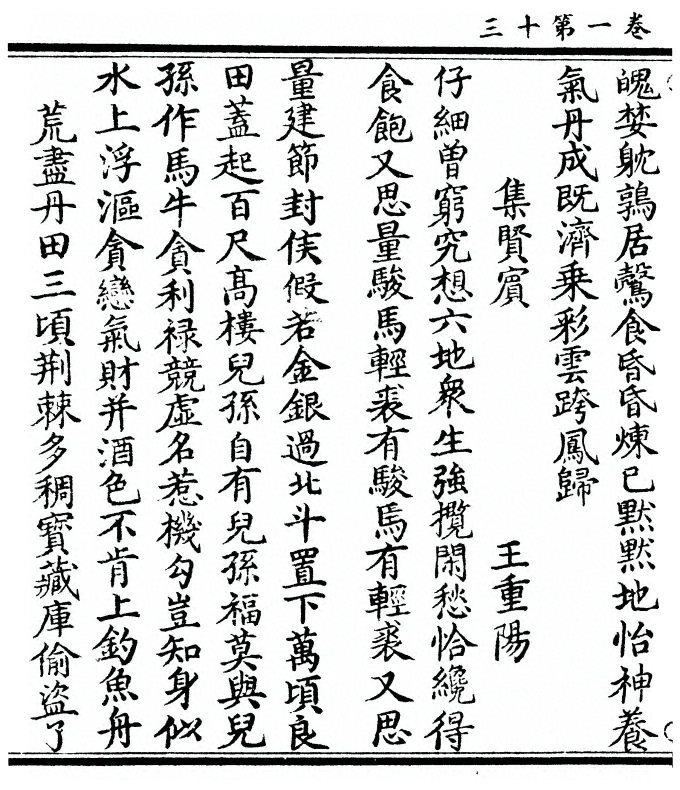 卷一第十三
魄婪躭鶉居鷇食昏昏煉已默默地怡神養
氣丹成既濟乗彩雲跨鳳歸
集賢賓 王重陽
仔細曽窮究想六地衆生強攬閑愁恰纔得
食飽又思量駿馬輕裘有駿馬有輕裘又思
量建節封侯假若金銀過北斗置下萬頃良
田蓋起百尺高樓兒孫自有兒孫福莫與兒
孫作馬牛貪利禄競虛名惹機勾豈知身似
水上浮漚貪戀氣財并酒色不肯上釣魚舟
荒盡丹田三頃荆棘多稠寶藏庫偷盜了